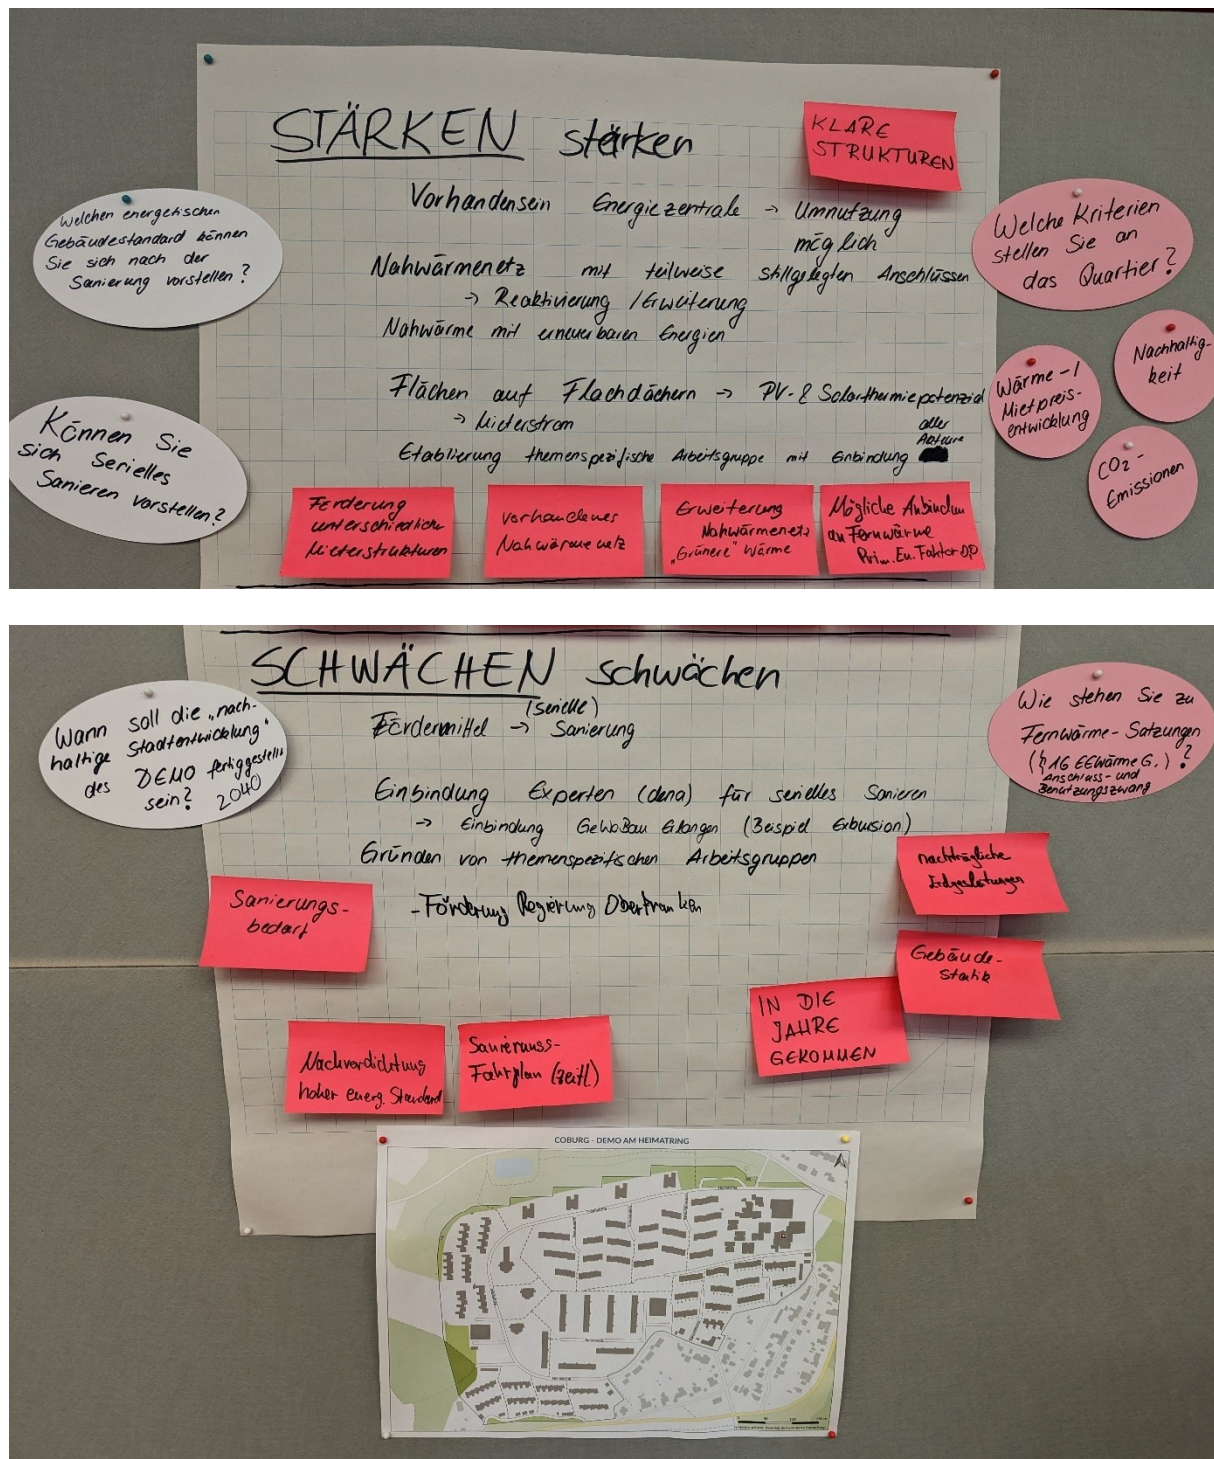 STÄRKEN stärken
KLARE
STRUKTUREN
Welchen energetischen
Gebäudestandard können
Sie sich nach der
Sanierung vorstellen?
Können Sie
sich Serielles
Sanieren vorstellen?
Vorhandensein Energiezentrale → Umnutzung
möglich
Nahwärmenetz mit teilweise stillgelegten Anschlüssen
→ Reaktivierung / Erweiterung
Nahwärme mit erneuerbaren Energien
Flächen auf Flachdächern → PV- & Solarthermiepotenzial
→ Mieterstrom
aller
Akteure
Etablierung themenspezifische Arbeitsgruppe mit Einbindung
Welche Kriterien
stellen Sie an
das Quartier?
Nachhaltig-
keit
Wärme-/
Mietpreis-
entwicklung
CO2-
Emissionen
Förderung
unterschiedliche
Mieterstrukturen
vorhandenes
Nahwärmenetz
Erweiterung
Nahwärmenetz
„Grünere" Wärme
Mögliche Anbindun
an Fernwärme
Prim. En. Faktor 0,0
SCHWÄCHEN schwächen
Wann soll die „nach-
haltige Stadtentwicklung"
des DEMO fertiggestellt
sein? 2040
(serielle)
Fördermittel → Sanierung
Einbindung Experten (dena) für serielles Sanieren
→ Einbindung GeWoBau Erlangen (Beispiel Exkursion)
Gründen von themenspezifischen Arbeitsgruppen
- Förderung Regierung Oberfranken
Wie stehen Sie zu
Fernwärme-Satzungen
(§ 16 EEWärmeG.)?
Anschluss- und
Benutzungszwang
nachträgliche
Gebäude-
statik
Sanierungs-
bedarf
IN DIE
JAHRE
GEKOMMEN
Nachverdichtung
hoher energ. Standard
Sanierungs-
Fahrplan (zeitl)
COBURG - DEMO AM HEIMATRING